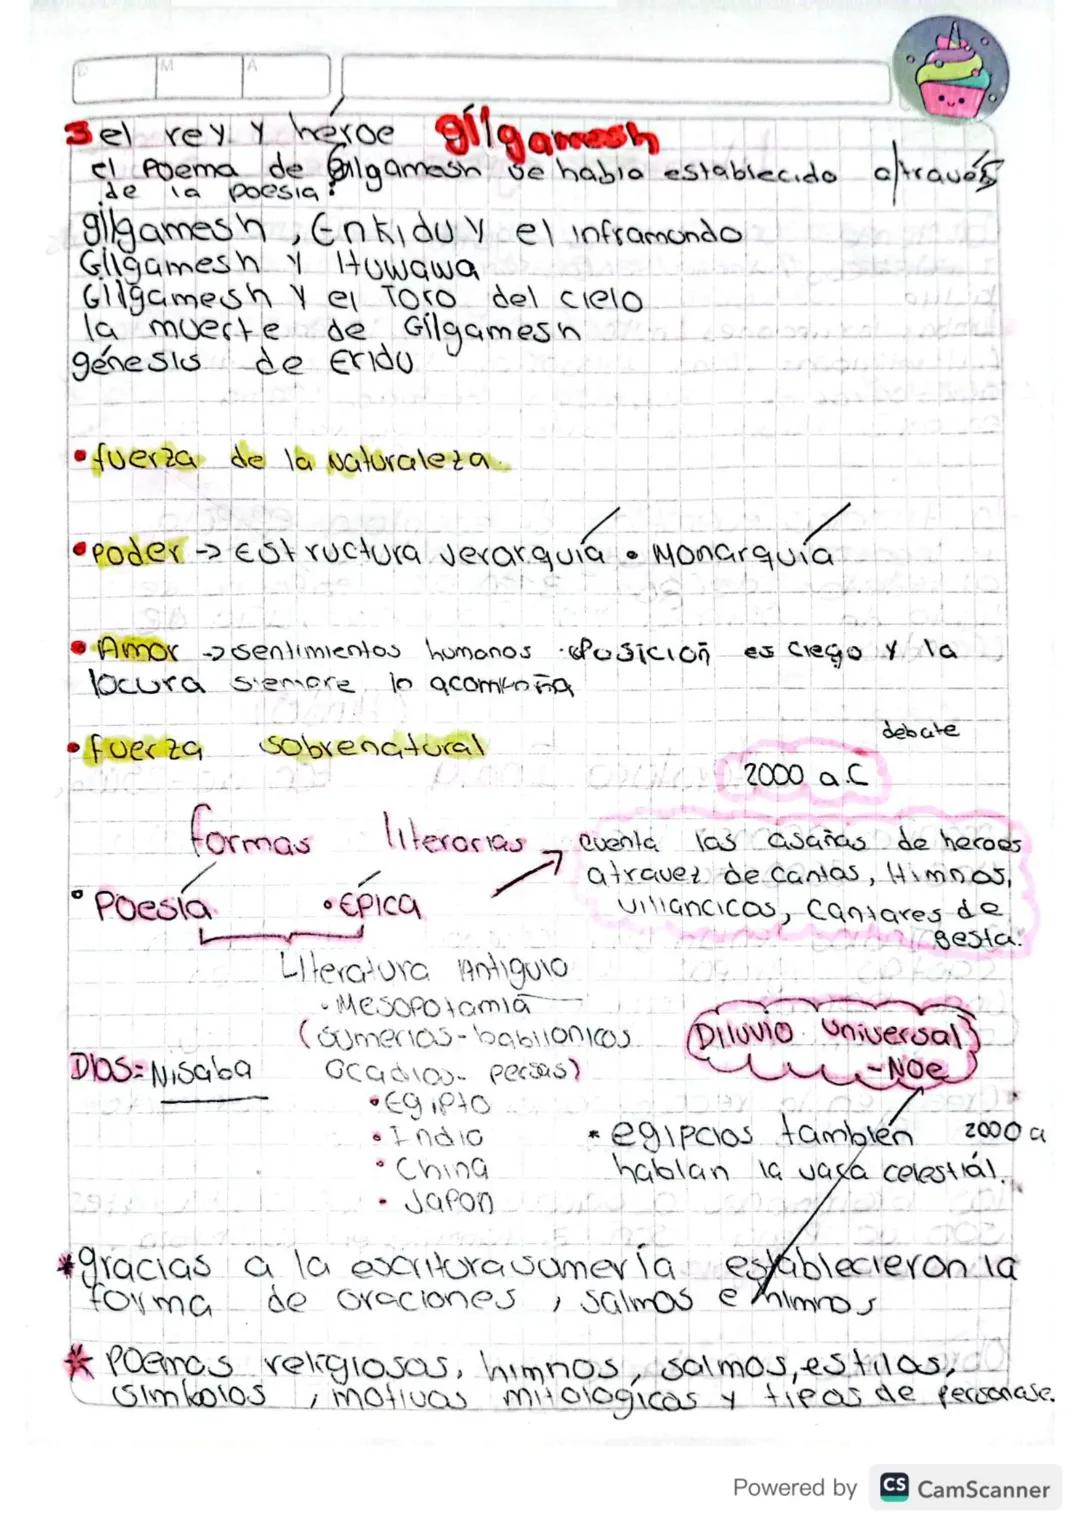 D M A
3 el rey y héroe gilgamesh
el Poema de Gilgamesh se habia establecido a/través
de la poesia:
gilgamesh, Enkidu y el inframundo
Gilgamesh y Huwawa
Gilgamesh y el Toro del cielo
la muerte de Gilgamesh
génesis de Eridu
• fuerza de la Naturaleza.
• Poder → Estructura Jerarquía • Monarquía
• Amor → sentimientos humanos · Posición es ciego y la
locura siempre lo acompaña
• fuerza sobrenatural
debate
2000 a.C
formas literarias
→ cuenta las asañas de heroes
atravez de cantos, Himnos,
villancicos, Cantares de
gesta.
• Poesía • Épica
Literatura Antiguio
• Mesopotamia
(sumerios - babilonicos
acadios - persas)
• Egipto
• India
• China
• Japon
Dios = Nisaba
Diluvio Universal
- Noe
* egipcios también 2000 a
hablan la vaca celestiál.
* gracias a la escritura sumería establecieron la
forma de oraciones, salmos e himnos
* Poemas religiosos, himnos, salmos, estilos,
simbolos, motivos mitológicos y tipos de personase.
Powered by CS CamScanner